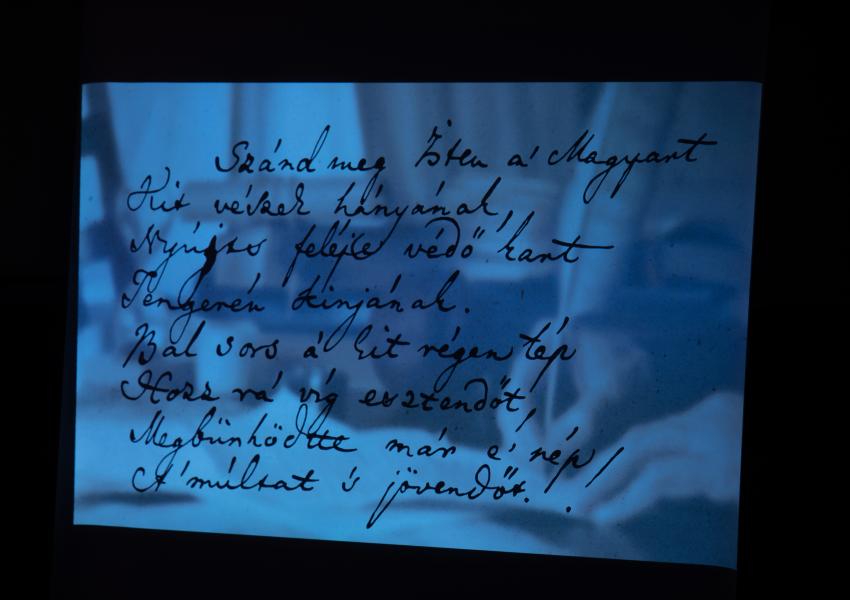 Szánd meg Isten a' Magyart
Kit vészek hányának,
Nyújts feléje védő kart
Tengerén kínjának.
Bal sors a' kit régen tép
Hozz rá víg esztendőt,
Megbünhödtte már e' nép
A' múltat 's jövendőt!